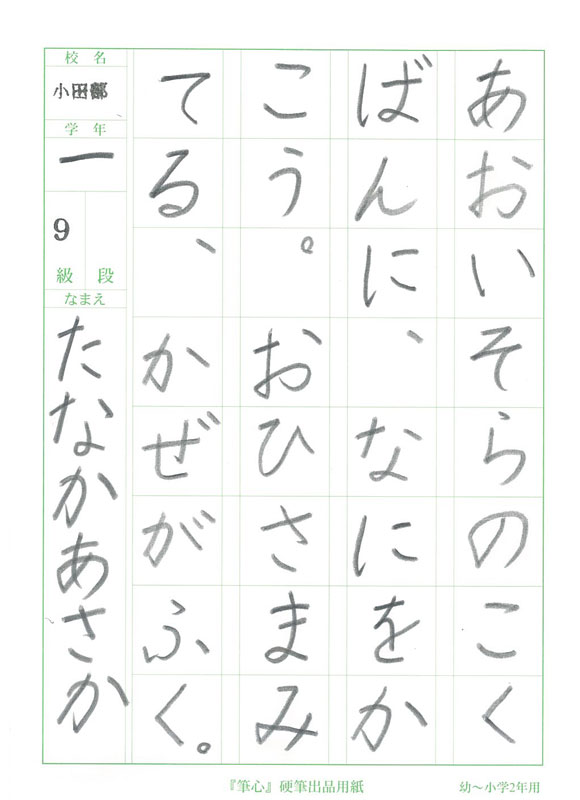 あおいそらのこく
ばんに、なにをか
こう。おひさまみ
てる、かぜがふく。
校名
小田部
学年
一
9
級 段
なまえ
たなかあさか
『筆心』硬筆出品用紙
幼～小学2年用